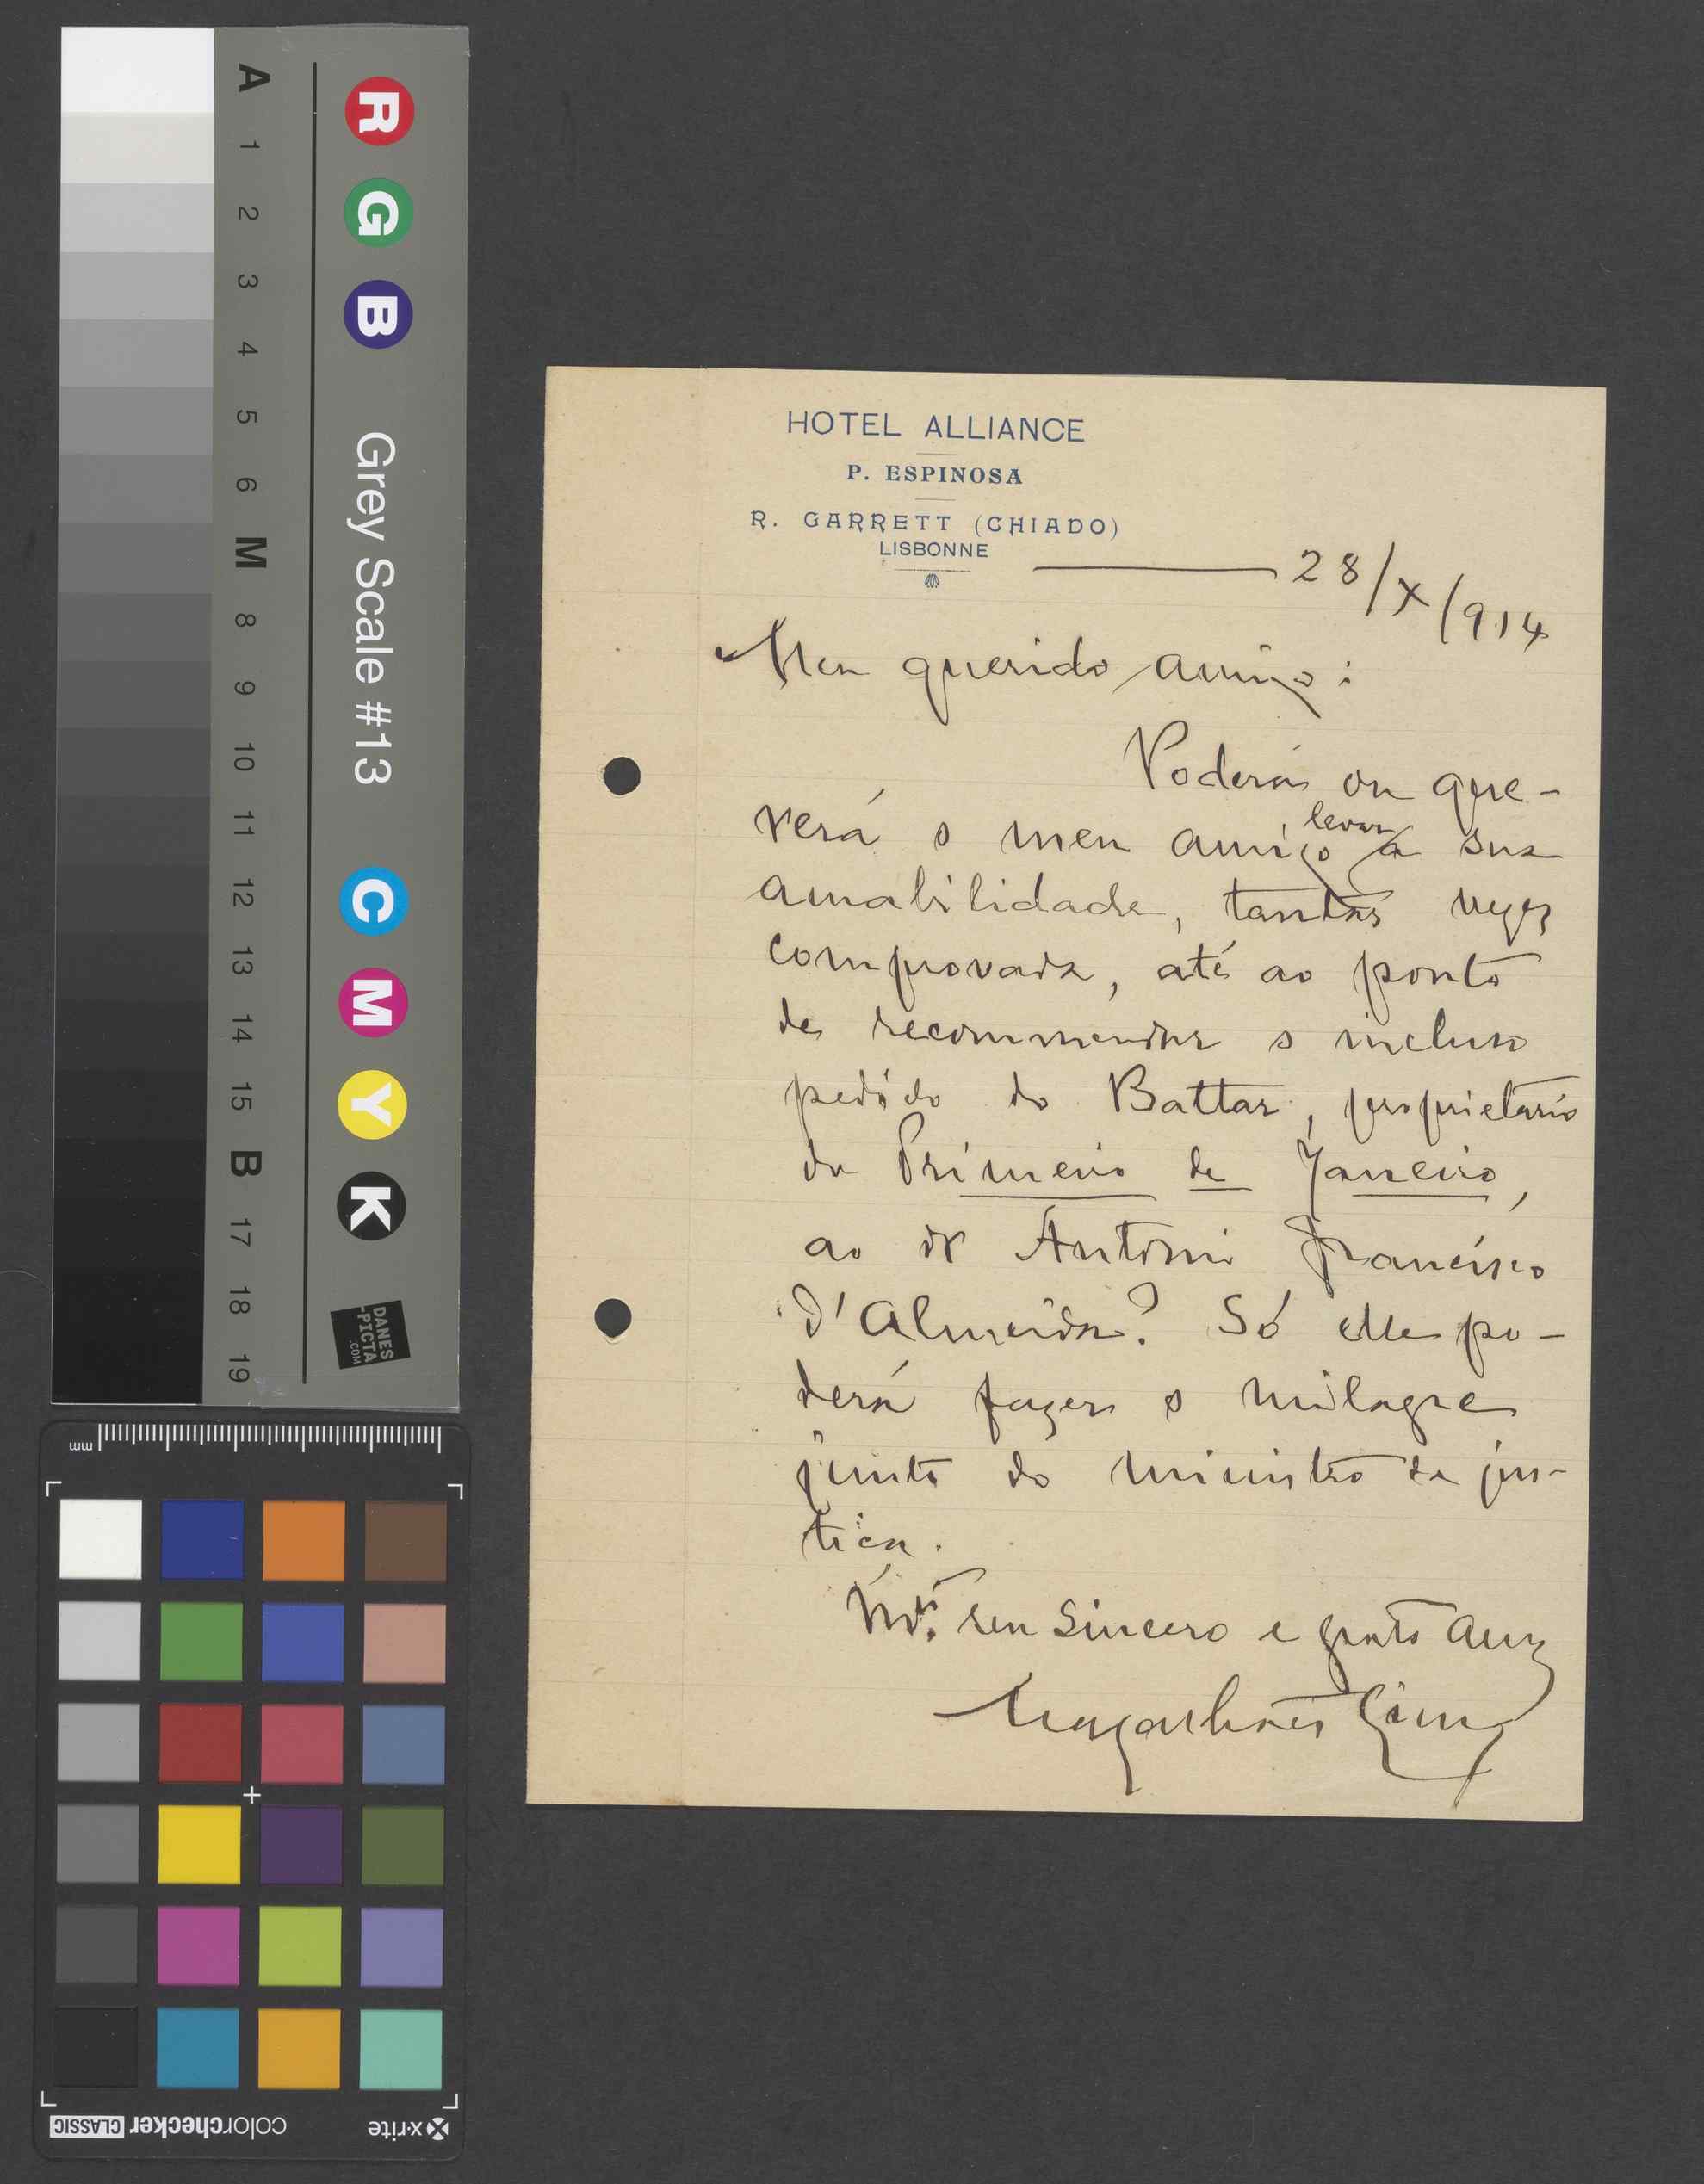 A 1 2 3 4 5 6 M 8 9 10 11 12 13 14 15 B 17 18 19
R G B Grey Scale #13 C M Y K
DANES
-PICTA
.COM
mm
x-rite colorchecker CLASSIC
HOTEL ALLIANCE
P. ESPINOSA
R. GARRETT (CHIADO)
LISBONNE
28/X/914
Meu querido amigo:
Poderá ou que-
rerá o meu amigo levar a sua
amabilidade, tantas vezes
comprovada, até ao ponto
de recommendar o incluso
pedido do Battar, proprietario
do Primeiro de Janeiro,
ao dr Antonio Francisco
d'Almeida? Só elle po-
derá fazer o milagre
junto do ministro da jus-
tiça.
seu sincero e grato am
Magalhães Lima